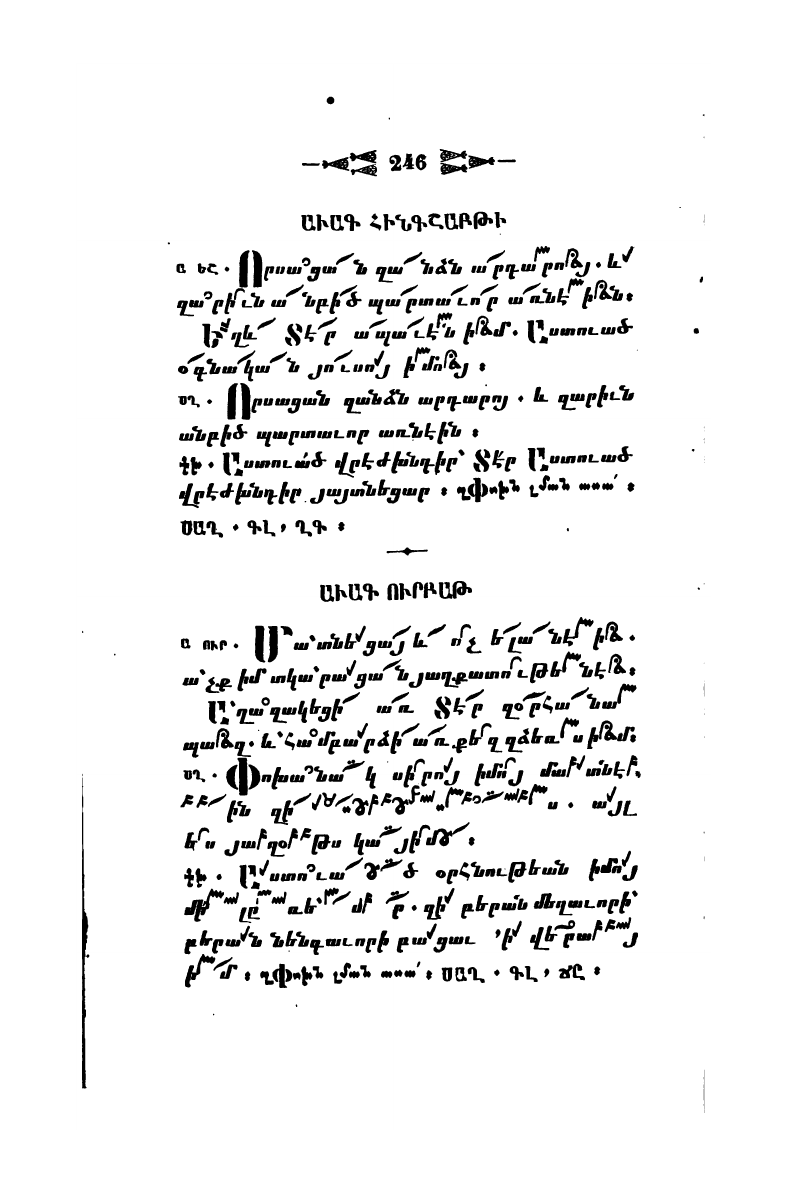 246
ԱՒԱԳ ՀԻՆԳՇԱԲԹԻ
Ա ԵՇ. Որսացան զանձն արդարոյ. և
զարիւն անբիծ պարտաւոր առնէին:
Եղև Տէր ապաւէն իմ. Աստուած
օգնական յուսոյ իմոյ:
ՍՂ. Որսացան զանձն արդարոյ. և զարիւն
անբիծ պարտաւոր առնէին:
Աստուած վրէժխնդիր՝ Տէր Աստուած
վրէժխնդիր յայտնեցար:
ՍԱՂ. ԳԼ, ՂԳ:
ԱՒԱԳ ՈՒՐԲԱԹ
Ա ՈՒՐ. Մատնեցայ և ոչ ելանէի.
աչք իմ տկարացան յաղքատութենէ:
Աղաղակեցի առ Տէր զօրհանա
պազ. և համբարձի առ քեզ զձեռս իմ:
ՍՂ. Փոխանակ սիրոյ իմոյ մատնէ
ին զիս. այլ
ես յաղօթս կայի իմ:
Աստուած օրհնութեան իմոյ
մի լռեր. զի բերան մեղաւորի՝
բերան նենգաւորի բացաւ ՚ի վերայ
իմ: ՍԱՂ. ԳԼ, ՃԸ: